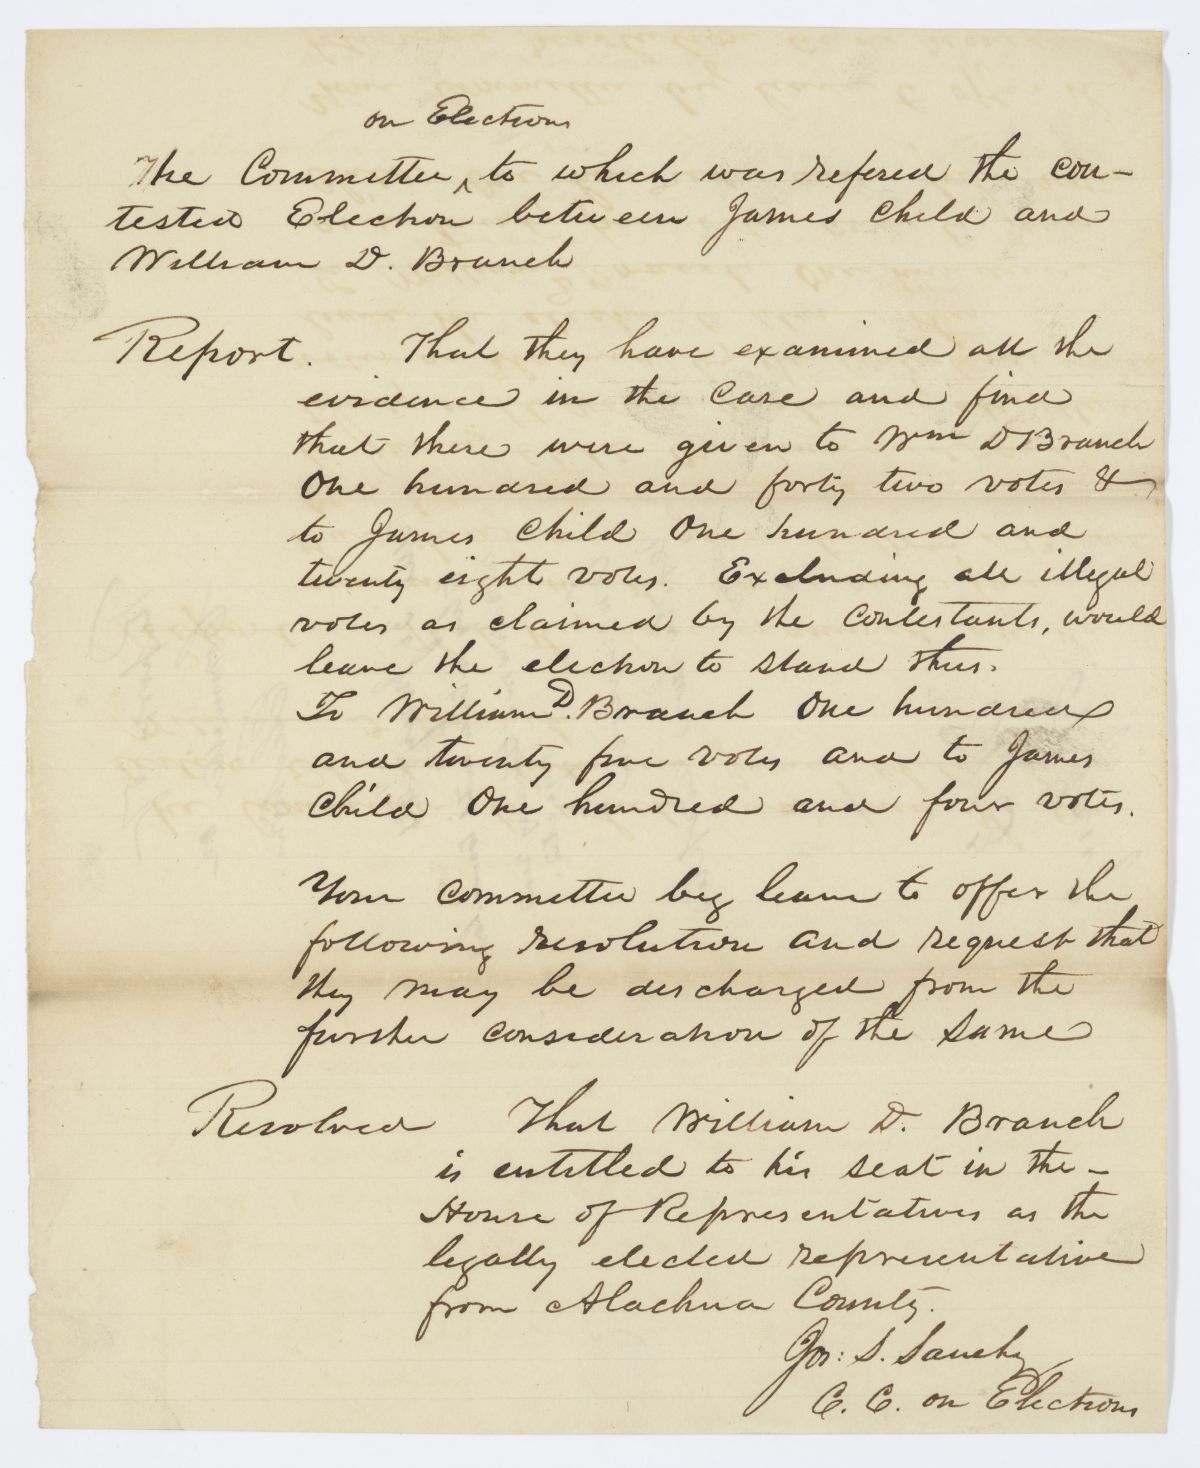 on Elections
The Committee ‸ to which was refered the con-
tested Election between James Child and
William D. Branch
Report. That they have examined all the
evidence in the Case and find
that there were given to Wm D Branch
One hundred and forty two votes &
to James Child One hundred and
twenty eight votes. Excluding all illegal
votes as claimed by the Contestants, would
leave the election to stand thus.
To William D. Branch One hundred
and twenty five votes and to James
Child One hundred and four votes.
Your committee beg leave to offer the
following resolution and request that
they may be discharged from the
further consideration of the same
Resolved That William D. Branch
is entitled to his seat in the-
House of Representatives as the
legally elected representative
from Alachua County.
Jos: S. Sanchez
C. C. on Elections